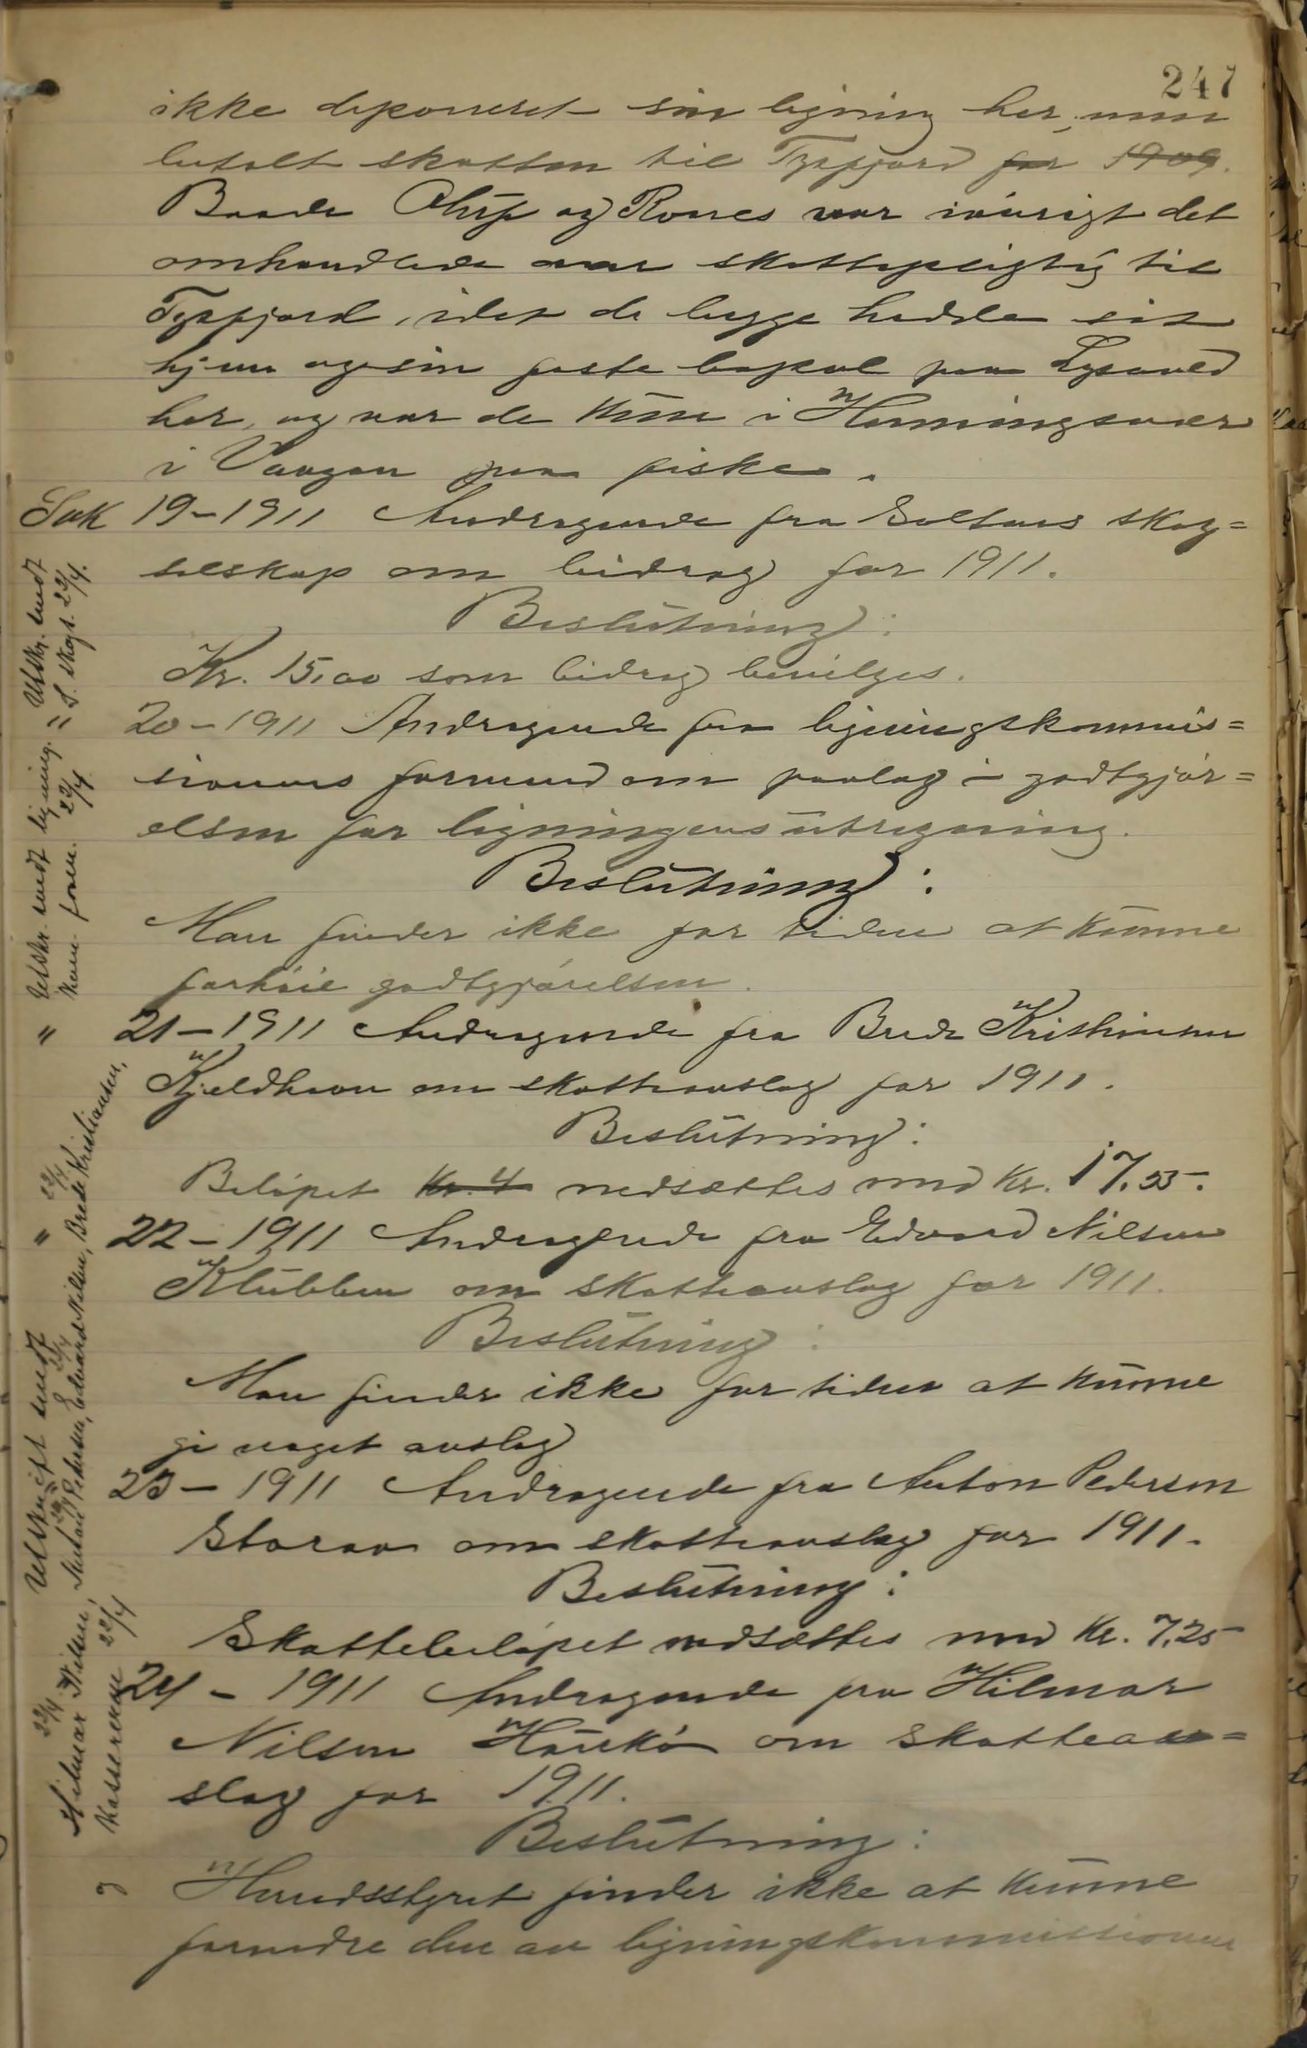 247
ikke deponeret sin ligning her, men
betalt skatten til Tysfjord for 1909.
Baade Oluf og Rones var iøvrigt det
omhandlede aar skattepligtig til
Tysfjord, idet de begge hadde sit
hjem og sin faste bopæl paa
her, og var de kun i Henningsvær
i Vaagan paa fiske.
Sak 19-1911 Andragende fra Saltens skog=
selskap om bidrag for 1911.
Beslutning:
Kr. 15,00 som bidrag bevilges.
" 20-1911 Andragende fra ligningskommis=
sionens formand om paalæg i godtgjør=
elsen for ligningens utregning.
Beslutning:
Man finder ikke for tiden at kunne
forhøie godtgjørelsen.
" 21-1911 Andragende fra Brede Kristiansen
Kjeldhavn om skatteavslag for 1911.
Beslutning:
Beløpet Kr. 4 nedsættes med Kr. 17.55.
" 22-1911 Andragende fra Edvard Nilsen
Klubben om skatteavslag for 1911.
Beslutning:
Man finder ikke for tiden at kunne
gi noget avslag
23-1911 Andragende fra Anton Pedersen
Storaa om skatteavslag for 1911.
Beslutning:
Skattebeløpet nedsættes med Kr. 7,25
24-1911 Andragende fra Hilmar
Nilsen Haukø om skatteav=
slag for 1911.
Beslutning:
Herredsstyret finder ikke at kunne
forandre den av ligningskommissionen
Utskr. sendt
S. skogs. 22/4.
Utskr. sendt ligning.
kom. form. 22/4
Utskrift sendt
22/4 22/4 22/4 22/4
Hilmar Nilsen, Pedersen, Edvard Nilsen, Brede Kristiansen,
Kassereren 22/4